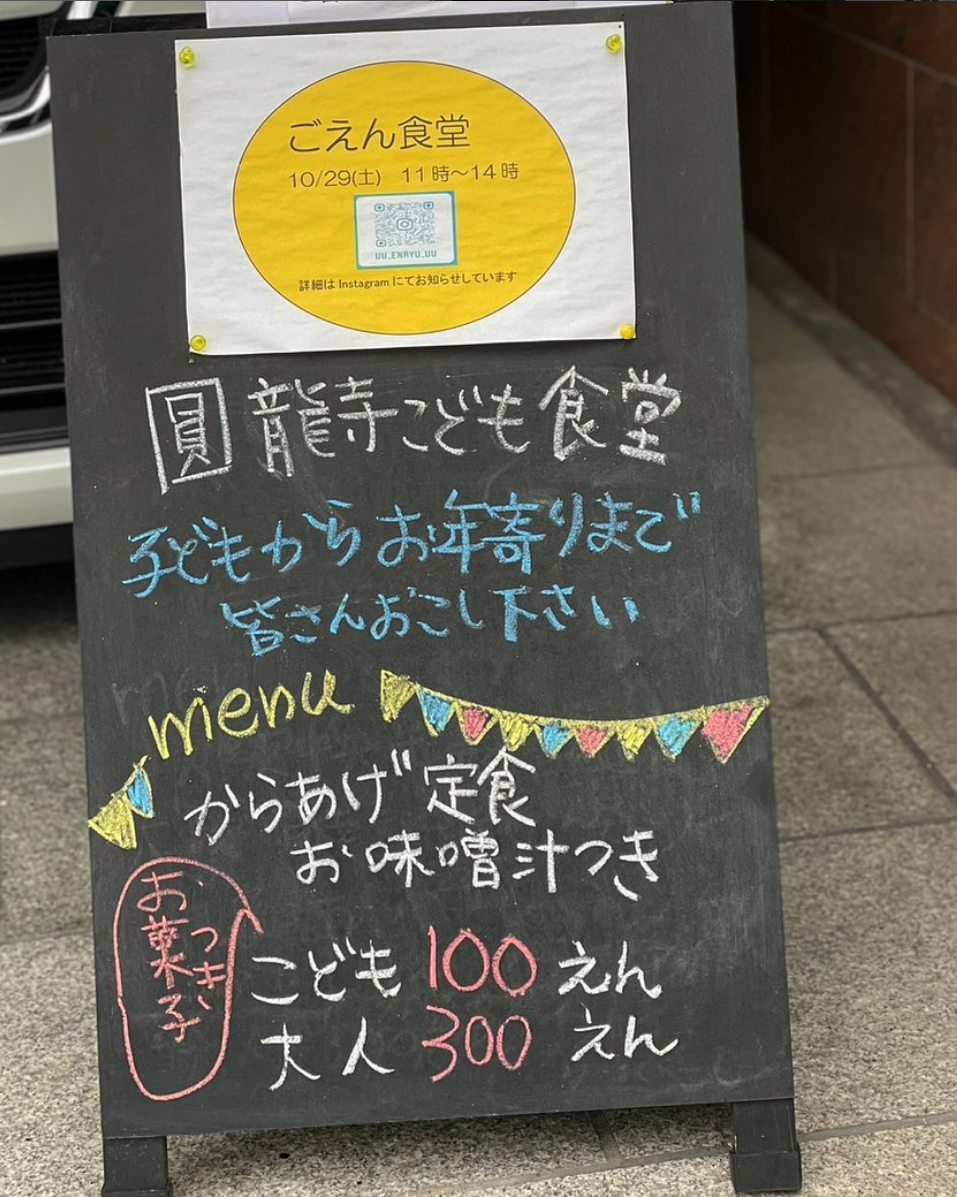 ごえん食堂
10/29(土) 11時～14時
UU_ENRYU_UU
詳細は Instagram にてお知らせしています
圓龍寺こども食堂
子どもからお年寄りまで
皆さんおこし下さい
menu
からあげ定食
お味噌汁つき
お菓子
つき
こども 100 えん
大人 300 えん